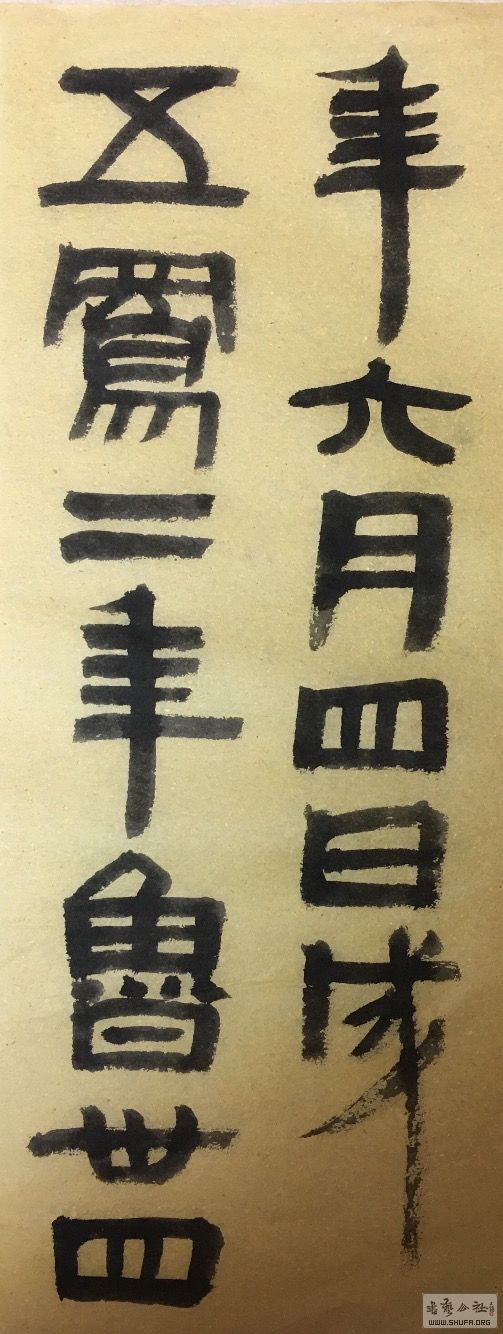 五鳳二年魯卅四
年六月四日成
書藝公社
WWW.SHUFA.ORG